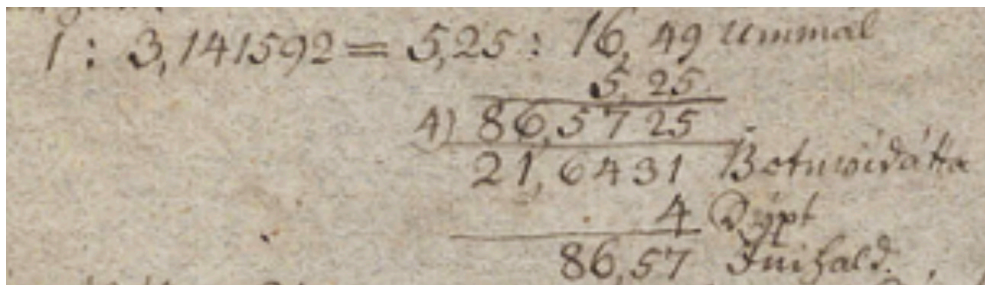 1 : 3,141592 = 5,25 : 16,49 Ummál
5,25
4) 86,5725
21,6431 Botnvidátta
4 Dýpt
86,57 Innhald.